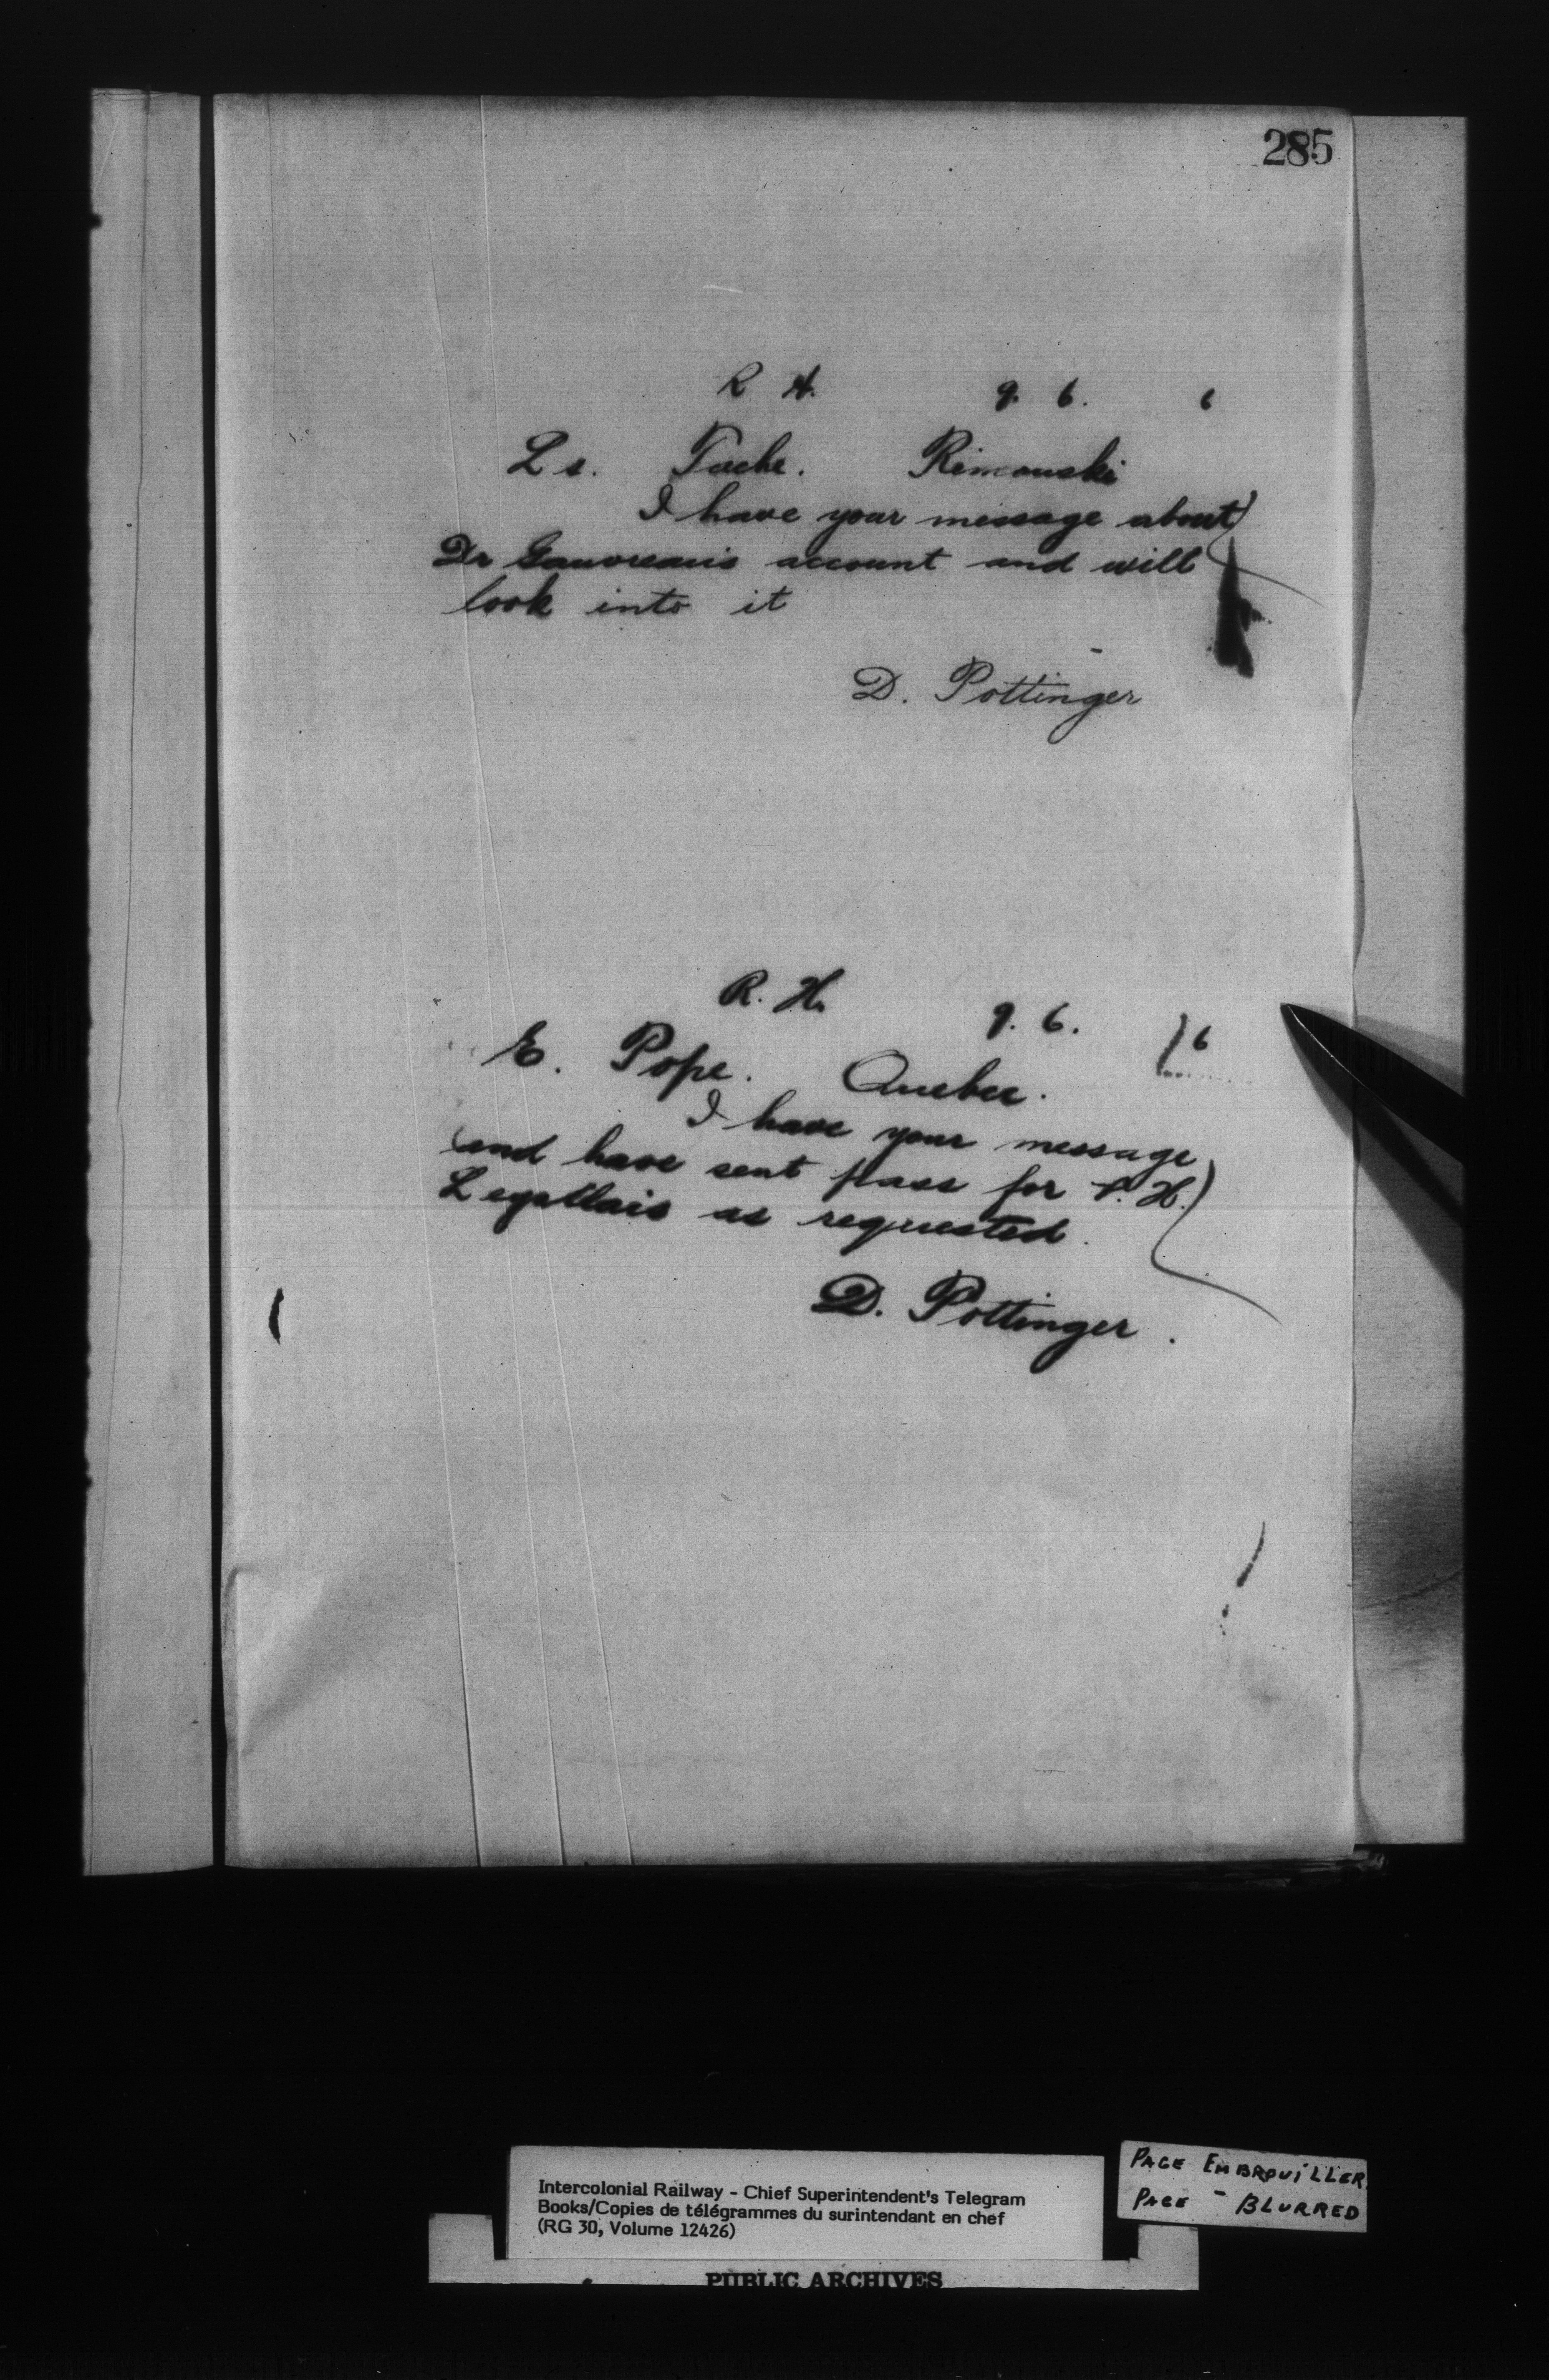 285
R H. 9. 6. 6
Ls. Tache. Rimouski
I have your message about
Dr Gauvreau's account and will
look into it
D. Pottinger
R. H. 9. 6. 6
E. Pope. Quebec.
I have your message
and have sent pass for P. H.
Legallais as requested.
D. Pottinger.
Intercolonial Railway - Chief Superintendent's Telegram
Books/Copies de télégrammes du surintendant en chef
(RG 30, Volume 12426)
PUBLIC ARCHIVES
PAGE EMBROUILLER
PAGE - BLURRED